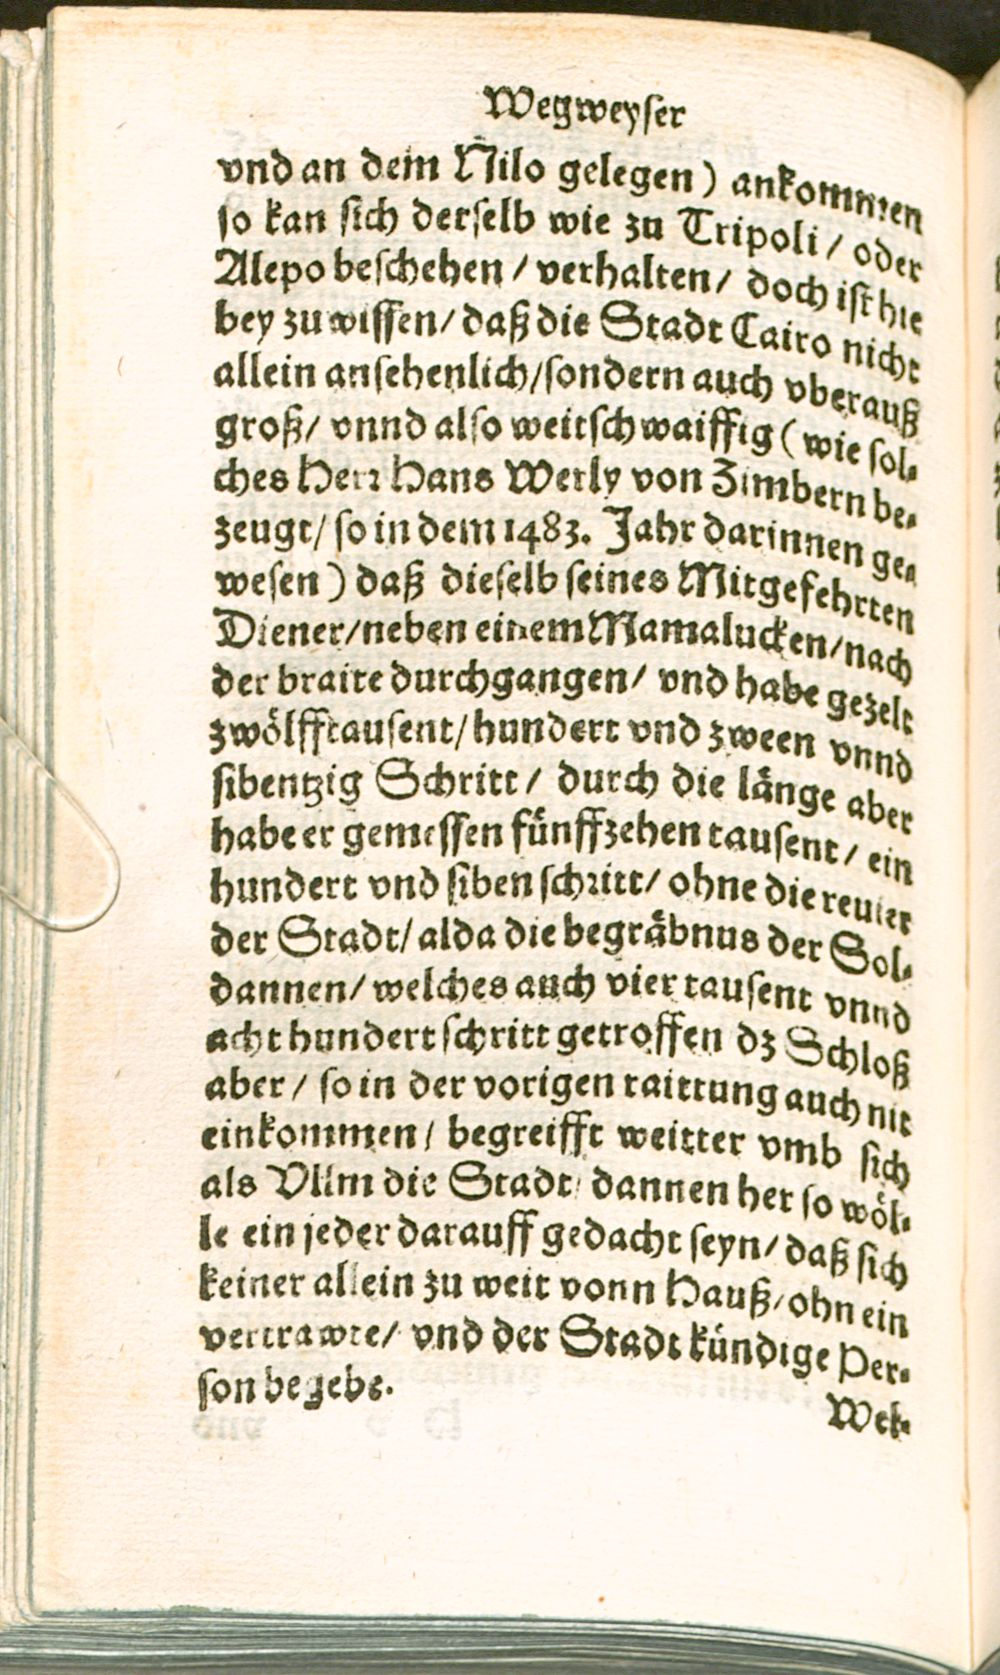 Wegweyser
vnd an dem Nilo gelegen) ankommen
so kan sich derselb wie zu Tripoli / oder
Alepo beschehen / verhalten / doch ist hie
bey zu wissen / daß die Stadt Cairo nicht
allein ansehenlich / sondern auch vberauß
groß / vnnd also weitschwaiffig (wie sol-
ches Herr Hans Werly von Zimbern be-
zeugt / so in dem 1483. Jahr darinnen ge-
wesen) daß dieselb seines Mitgefehrten
Diener / neben einem Mamalucken / nach
der braite durchgangen / vnd habe gezelt
zwölfftausent / hundert vnd zween vnnd
sibentzig Schritt / durch die länge aber
habe er gemessen fünffzehen tausent / ein
hundert vnd siben schritt / ohne die reuier
der Stadt / alda die begräbnus der Sol-
dannen / welches auch vier tausent vnnd
acht hundert schritt getroffen dz Schloß
aber / so in der vorigen raittung auch nit
einkommen / begreifft weitter vmb sich
als Vllm die Stadt / dannen her so wöl-
le ein jeder darauff gedacht seyn / daß sich
keiner allein zu weit vonn Hauß / ohn ein
vertrawte / vnd der Stadt kündige Per-
son begebe.
Wel-